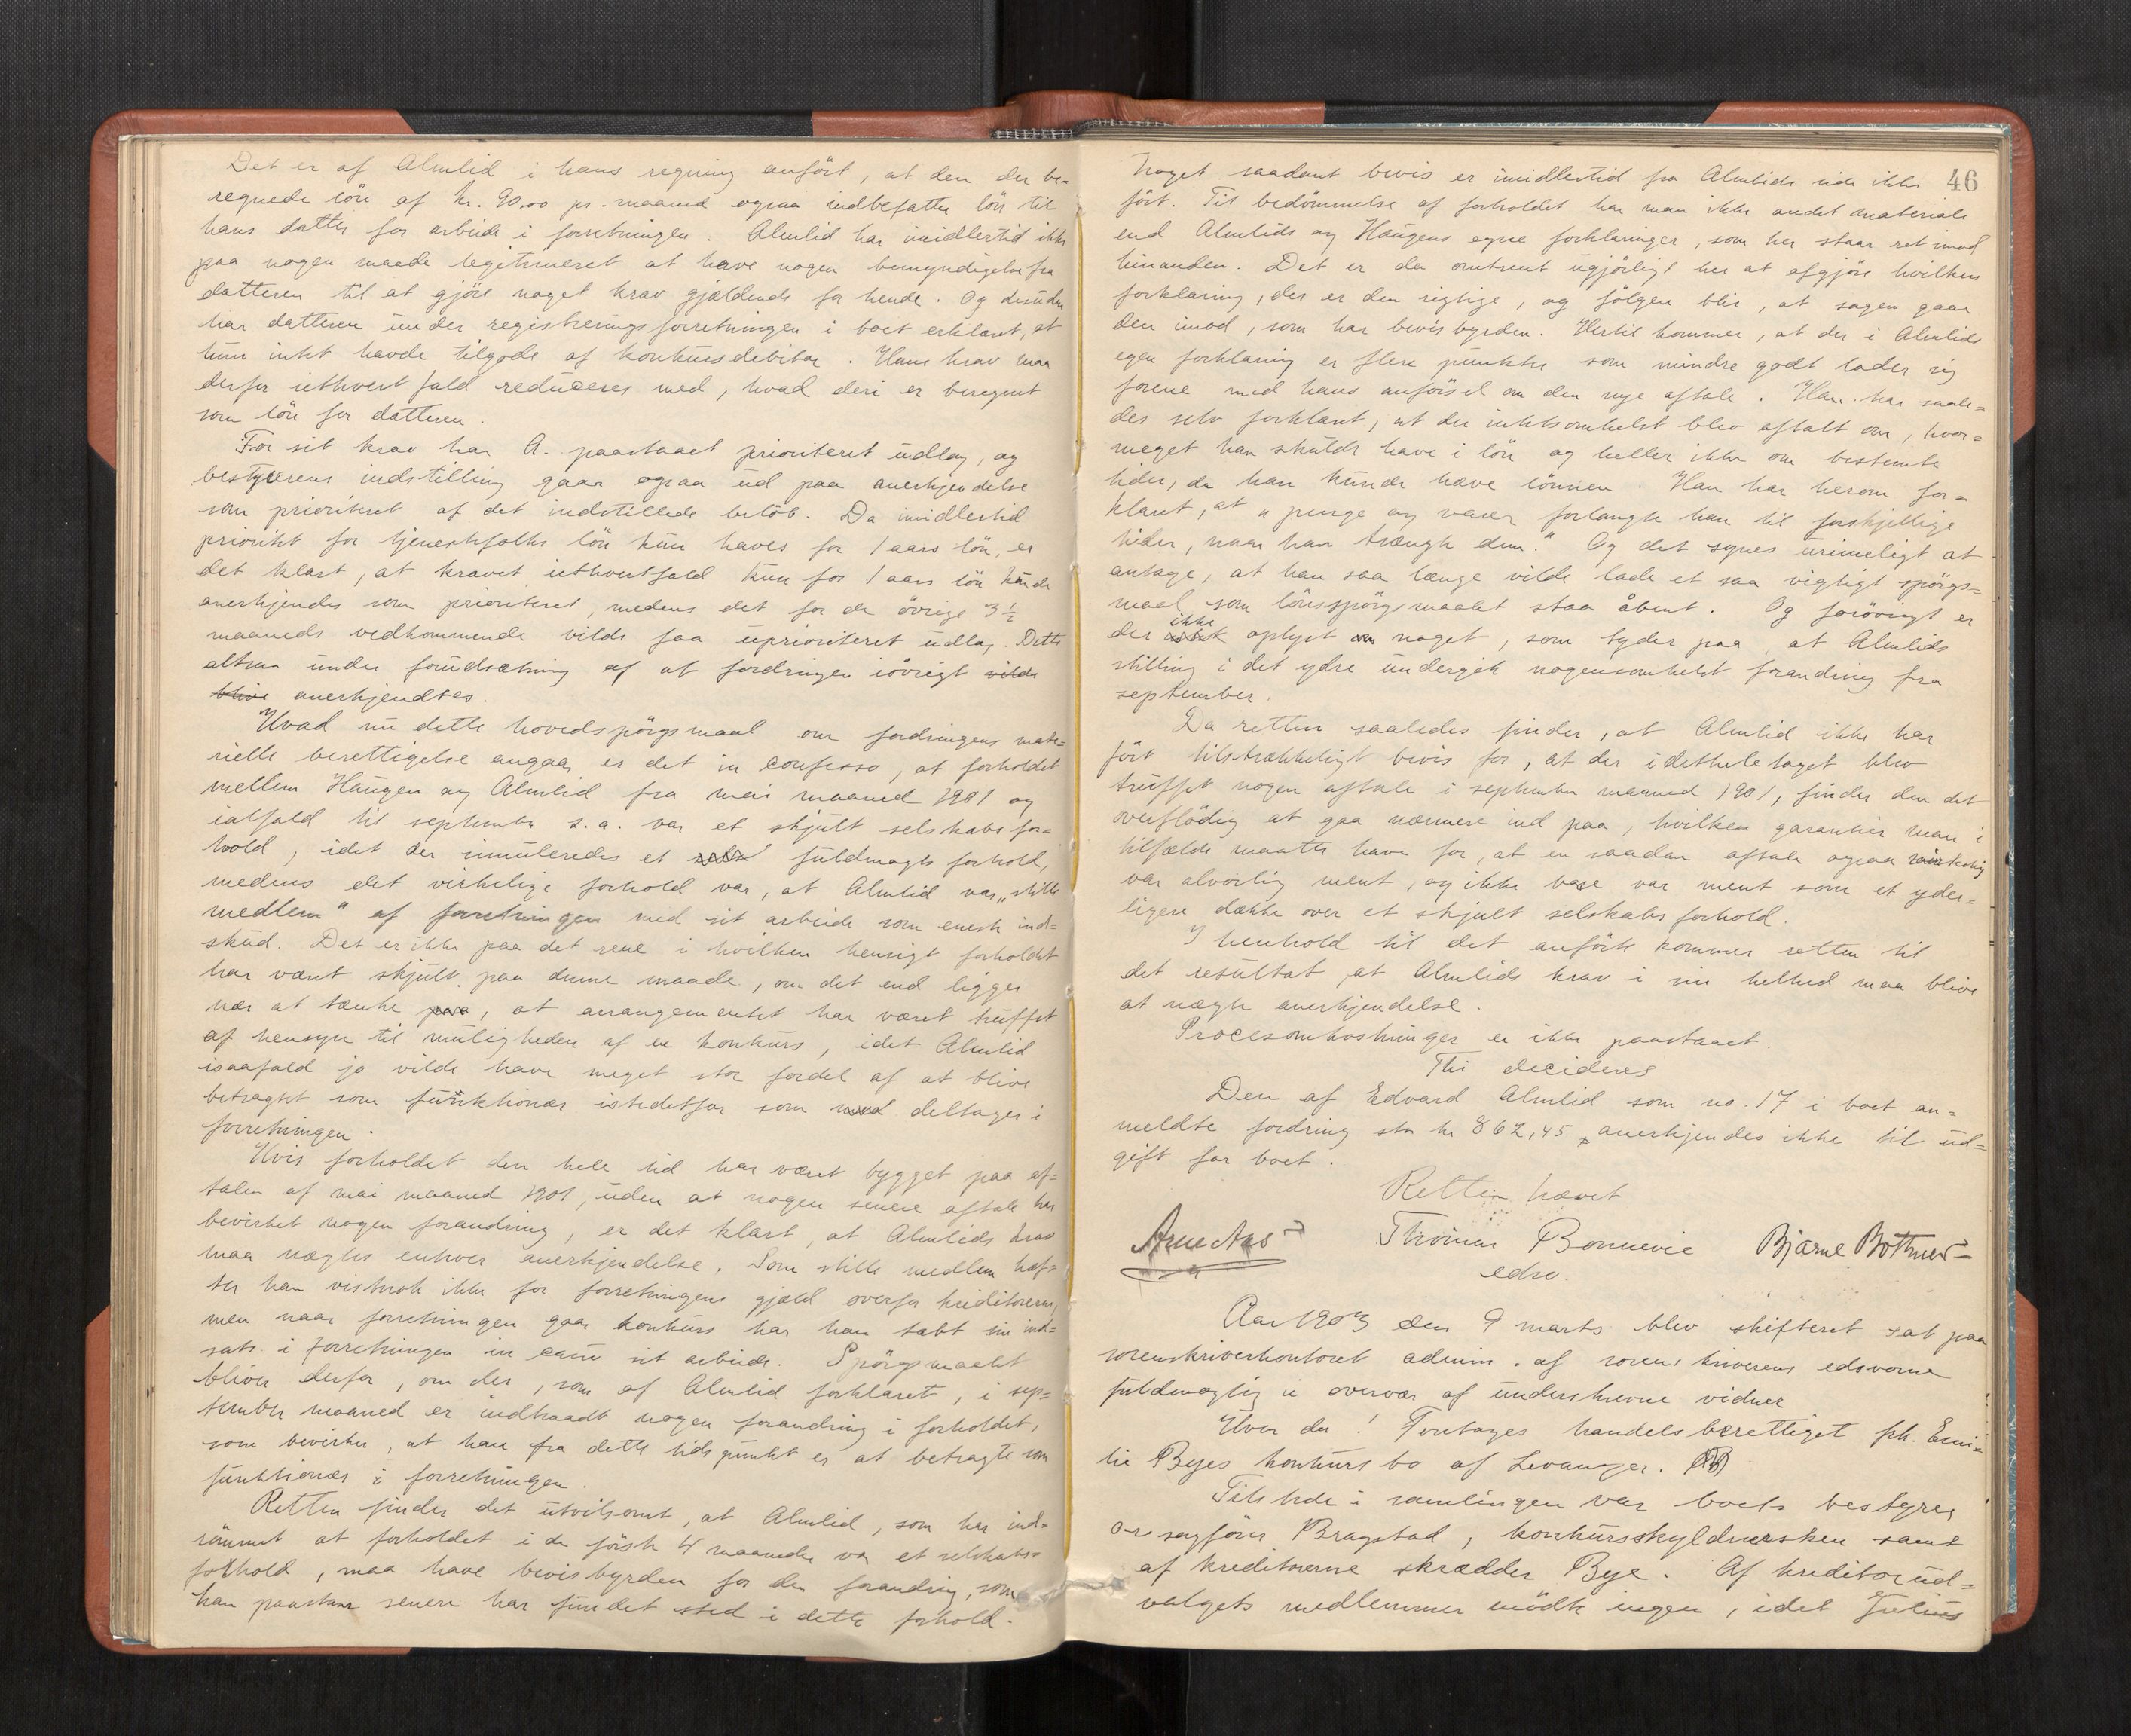 Det er af Almlid i hans regning anført, at den der be-
regnede løn af kr. 90,00 pr. maaned ogsaa indbefatter løn til
hans datter for arbeide i forretningen. Almlid har imidlertid ikke
paa nogen maade legitimeret at have nogen bemyndigelse fra
datteren til at gjøre noget krav gjældende for hende. Og desuden
har datteren under registreringsforretningen i boet erklæret, at
hun intet havde tilgode af konkursdebitor. Hans krav maa
derfor iethvert fald reduceres med, hvad deri er beregnet
som løn for datteren.
For sit krav har A. paastaaet prioriteret udlæg, og
bestyrerens indstilling gaar ogsaa ud paa anerkjendelse
som prioriteret af det indstillede beløb. Da imidlertid
prioritet for tjenestefolks løn kun haves for 1 aars løn, er
det klart, at kravet iethvertfald kun for 1 aars løn kunde
anerkjendes som prioriteret, medens det for de øvrige 3 1/2
maaneds vedkommende vilde faa uprioriteret udlæg. Dette
altsaa under forudsætning af at fordringen iøvrigt vilde
blive anerkjendtes.
Hvad nu dette hovedspørgsmaal om fordringens mate=
rielle berettigelse angaar, er det in confesso, at forholdet
mellem Haugen og Almlid fra mai maaned 1901 og
ialfald til september s.a. var et skjult selskabsfor=
hold, idet der simuleredes et fuldmagts forhold,
medens det virkelige forhold var, at Almlid var „stille
medlem" af forretningen med sit arbeide som eneste ind=
skud. Det er ikke paa det rene i hvilken hensigt forholdet
har været skjult paa denne maade, om det end ligger
nær at tænke paa, at arrangementet har været truffet
af hensyn til muligheden af en konkurs, idet Almlid
isaafald jo vilde have meget stor fordel af at blive
betragtet som funktionær istedetfor som deltager i
forretningen.
Hvis forholdet den hele tid har været bygget paa af=
talen af mai maaned 1901, uden at nogen senere aftale har
bevirket nogen forandring, er det klart, at Almlids krav
maa nægtes enhver anerkjendelse. Som stille medlem hæf=
ter han vistnok ikke for forretningens gjæld overfor kreditorerne,
men naar forretningen gaar konkurs har han tabt sin ind=
sats i forretningen in casu sit arbeide. Spørgsmaalet
bliver derfor, om der, som af Almlid forklaret, i sep=
tember maaned er indtraadt nogen forandring i forholdet,
som bevirker, at han fra dette tidspunkt er at betragte som
funktionær i forretningen.
Retten finder det utvilsomt, at Almlid, som har ind=
rømmet at forholdet i de første 4 maaneder var et selskabs=
forhold, maa have bevisbyrden for den forandring, som
han paastaar senere har fundet sted i dette forhold.
46
Noget saadant bevis er imidlertid fra Almlids side ikke
ført. Til bedømmelse af forholdet har man ikke andet materiale
end Almlids og Haugens egne forklaringer, som her staar ret imod
hinanden. Det er da omtrent ugjørligt her at afgjøre hvilken
forklaring, der er den rigtige, og følgen blir, at sagen gaar
den imod, som har bevisbyrden. Hertil kommer, at der i Almlids
egen forklaring er flere punkter som mindre godt lader sig
forene med hans anførsel om den nye aftale. Han har saale=
des selv forklaret, at der intetsomhelst blev aftalt om, hvor=
meget han skulde have i løn og heller ikke om bestemte
tider, da han kunde hæve lønnen. Han har herom for=
klaret, at „penge og varer forlangte han til forskjellige
tider, naar han trængte dem." Og det synes urimeligt at
antage, at han saa længe vilde lade et saa vigtigt spørgs=
maal som lønsspørgsmaalet staa åbent. Og forøvrigt er
der ikke oplyst om noget, som tyder paa, at Almlids
stilling i det ydre undergik nogensomhelst forandring fra
september.
Da retten saaledes finder, at Almlid ikke har
ført tilstrækkeligt bevis for, at der idethele taget blev
truffet nogen aftale i september maaned 1901, finder den det
overflødig at gaa nærmere ind paa, hvilken garantier man i
tilfælde maatte have for, at en saadan aftale ogsaa virkelig
var alvorlig ment, og ikke bare var ment som et yder=
ligere dække over et skjult selskabs forhold.
I henhold til det anførte kommer retten til
det resultat, at Almlids krav i sin helhed maa blive
at nægte anerkjendelse.
Procesomkostninger er ikke paastaaet.
Thi decideres
Den af Edvard Almlid som no. 17 i boet an=
meldte fordring stor kr 862,45 anerkjendes ikke til ud=
gift for boet.
Retten hævet
Arne Aas Thomas Bonnevie Bjarne Bothner
edsv.
Aar 1903 den 9 marts blev skifteret sat paa
sorenskriverkontoret admin. af sorenskriverens edsvorne
fuldmægtig i overvær af underskrevne vidner
Hvor da! Foretages handelsberettiget frk. Emi=
lie Byes konkursbo af Levanger.
Tilstede i samlingen var boets bestyrer
o.r.sagfører Bragstad, konkursskyldnersken samt
af kreditorerne skrædder Bye. Af kreditorud=
valgets medlemmer mødte ingen, idet Julius